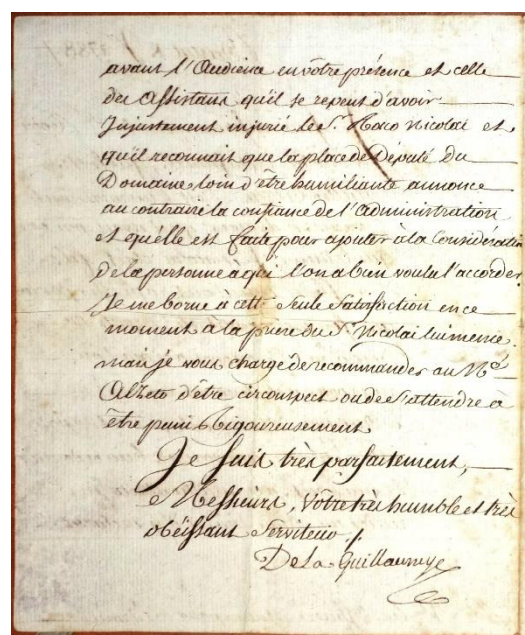 avant l'Audience en vôtre présence et celle
des Assistans qu'il se repent d'avoir
Injustement injurié le S.r Maco Nicolai et
qu'il reconnait que la place de Député du
Domaine loin d'être humiliante annonce
au contraire la confiance de l'administration
et qu'elle est faite pour ajouter à la Considération
de la personne à qui l'on a bien voulu l'accorder.
Je me borne à cette Seule Satisfaction en ce
moment à la priere du S.r Nicolai lui meme.
mais je vous charge de recommander au
d'être circonspect ou de s'attendre à
être puni Rigoureusement
Je suis très parfaitement,
Messieurs, Vôtre très humble et très
obéissant Serviteur ./.
De la Guillaumye